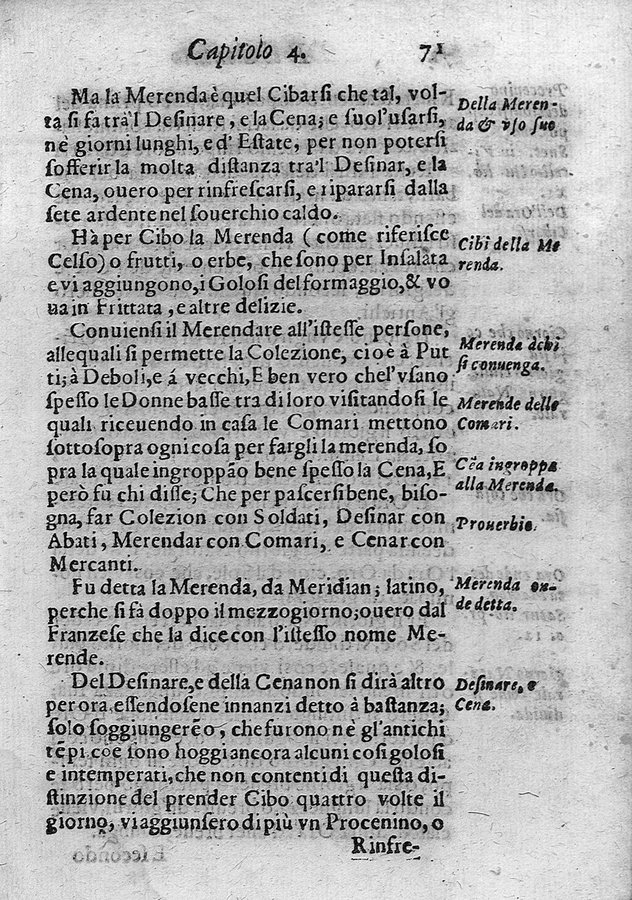 Capitolo 4. 71
Ma la Merenda è quel Cibarsi che tal, vol-
ta si fa trà'l Desinare, e la Cena; e suol'usarsi,
nè giorni lunghi, e d'Estate, per non potersi
sofferir la molta distanza tra'l Desinar, e la
Cena, ouero per rinfrescarsi, e ripararsi dalla
sete ardente nel souerchio caldo.
Della Meren-
da & vso suo
Hà per Cibo la Merenda (come riferisce
Celso) o frutti, o erbe, che sono per Insalata
e vi aggiungono, i Golosi del formaggio, & vo
ua in Frittata, e altre delizie.
Cibi della Me
renda.
Conuiensi il Merendare all'istesse persone,
allequali si permette la Colezione, cioè à Put
ti; à Deboli, e á vecchi, E ben vero chel'vsano
spesso le Donne basse tra di loro visitandosi le
quali riceuendo in casa le Comari mettono
sottosopra ogni cosa per fargli la merenda, so
pra la quale ingroppão bene spesso la Cena, E
però fu chi disse; Che per pascersi bene, biso-
gna, far Colezion con Soldati, Desinar con
Abati, Merendar con Comari, e Cenar con
Mercanti.
Merenda à chi
si conuenga.
Merende delle
Comari.
Cẽa ingroppa
alla Merenda.
Prouerbio.
Fu detta la Merenda, da Meridian; latino,
perche si fà doppo il mezzogiorno; ouero dal
Franzese che la dice con l'istesso nome Me-
rende.
Merenda on-
de detta.
Del Desinare, e della Cena non si dirà altro
per ora essendosene innanzi detto à bastanza;
solo soggiungerẽo, che furono nè gl'antichi
tẽpi cõe sono hoggi ancora alcuni cosi golosi
e intemperati, che non contenti di questa di-
stinzione del prender Cibo quattro volte il
giorno, vi aggiunsero di più vn Procenino, o
Rinfre-
Desinare, e
Cena.